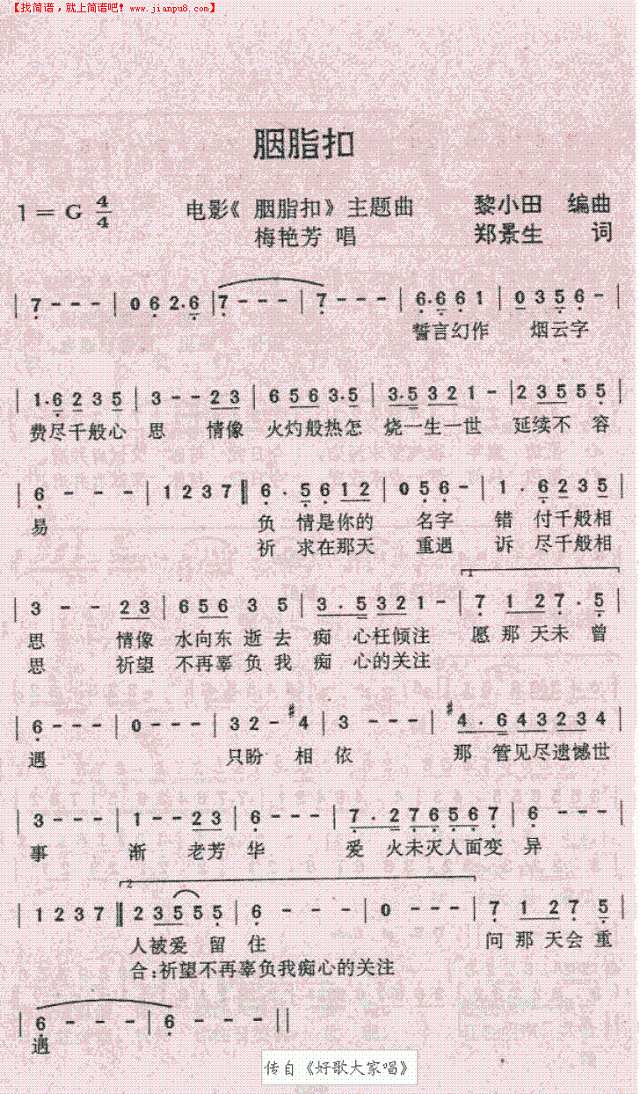 【找简谱，就上简谱吧! www.jianpu8.com】
胭脂扣
1=G 4/4
电影《胭脂扣》主题曲 黎小田 编曲
梅艳芳 唱 郑景生 词
| 7 - - - | 0 6 2·6 | 7 - - - | 7 - - - | 6·6 6 1 | 0 3 5 6 - |
誓言幻作 烟云字
| 1·6 2 3 5 | 3 - - 2 3 | 6 5 6 3·5 | 3·5 3 2 1 - | 2 3 5 5 5 |
费尽千般心 思 情像 火灼般热怎 烧一生一世 延续不 容
| 6 - - - | 1 2 3 7 ‖ 6·5 6 1 2 | 0 5 6 - | 1·6 2 3 5 |
易 负 情是你的 名字 错 付千般相
祈 求在那天 重遇 诉 尽千般相
1
| 3 - - 2 3 | 6 5 6 3 5 | 3·5 3 2 1 - | 7 1 2 7·5 |
思 情像 水向东 逝去 痴 心枉倾注 愿那 天未 曾
思 祈望 不再辜 负我 痴 心的关注
| 6 - - - | 0 - - - | 3 2 - #4 | 3 - - - | #4·6 4 3 2 3 4 |
遇 只盼 相 依 那 管见尽遗憾世
| 3 - - - | 1 - - 2 3 | 6 - - - | 7·2 7 6 5 6 7 | 6 - - - |
事 渐 老芳 华 爱 火未灭人面变 异
2
| 1 2 3 7 ‖ 2 3 5 5 5 | 6 - - - | 0 - - - | 7 1 2 7 5 |
人被爱 留 住 问那 天会 重
合:祈望不再辜负我痴心的关注
| 6 - - - | 6 - - - ||
遇
传自《好歌大家唱》